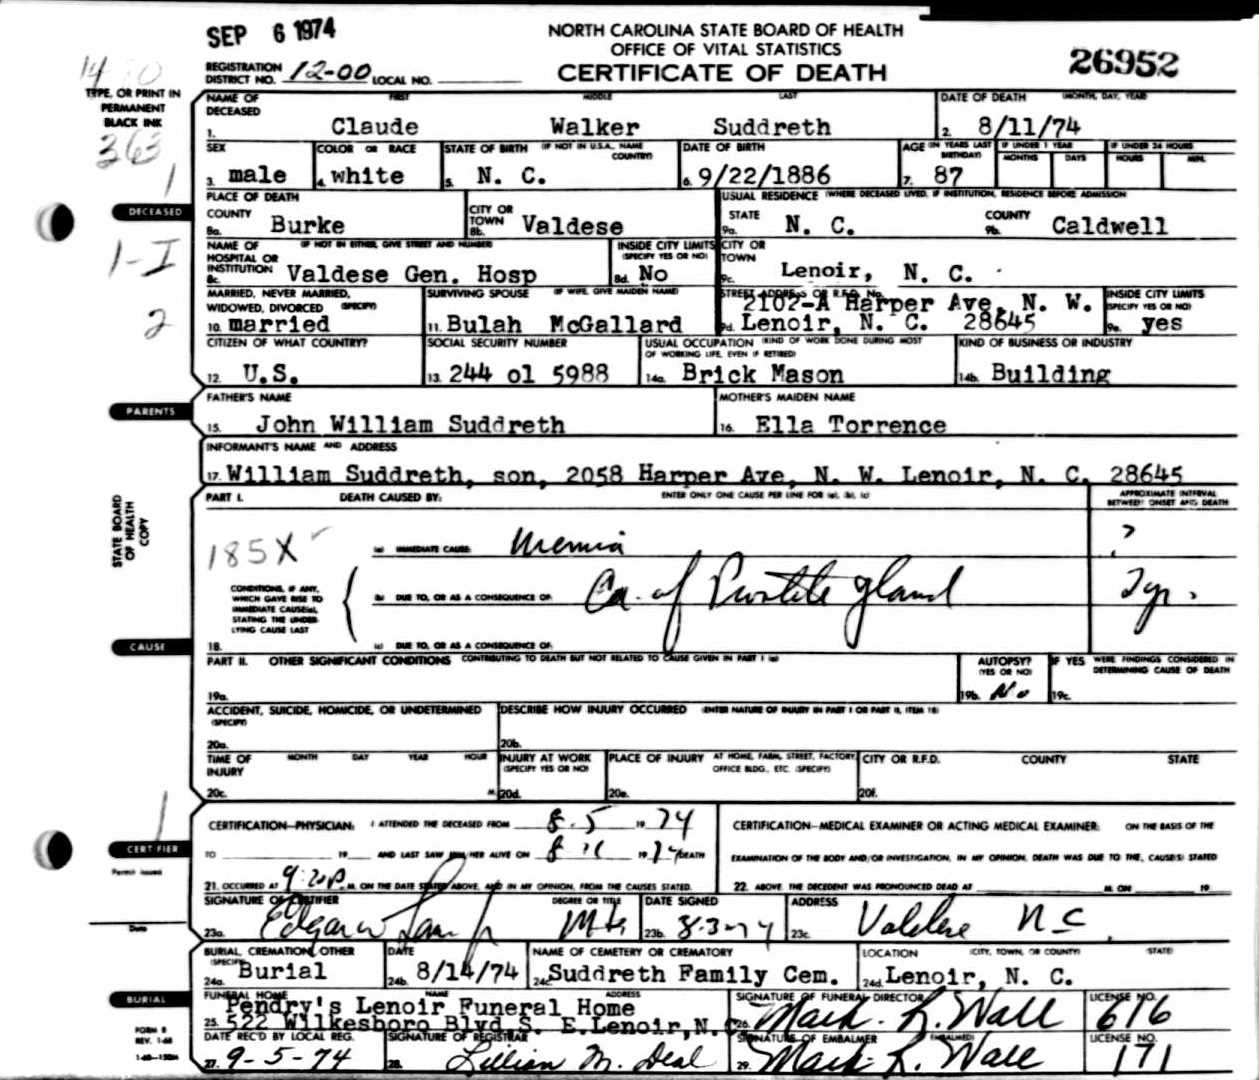 SEP 6 1974
NORTH CAROLINA STATE BOARD OF HEALTH
OFFICE OF VITAL STATISTICS
CERTIFICATE OF DEATH
26952
REGISTRATION DISTRICT NO. 12-00 LOCAL NO.
TYPE, OR PRINT IN
PERMANENT
BLACK INK
363
1
NAME OF DECEASED FIRST MIDDLE LAST
1. Claude Walker Suddreth
DATE OF DEATH (MONTH, DAY, YEAR)
2. 8/11/74
SEX
3. male
COLOR OR RACE
4. white
STATE OF BIRTH (IF NOT IN U.S.A., NAME COUNTRY)
5. N. C.
DATE OF BIRTH
6. 9/22/1886
AGE (IN YEARS LAST BIRTHDAY)
7. 87
IF UNDER 1 YEAR
MONTHS DAYS
IF UNDER 24 HOURS
HOURS MIN.
DECEASED
PLACE OF DEATH
COUNTY
8a. Burke
CITY OR TOWN
8b. Valdese
USUAL RESIDENCE (WHERE DECEASED LIVED, IF INSTITUTION, RESIDENCE BEFORE ADMISSION
STATE
9a. N. C.
COUNTY
9b. Caldwell
1-I
NAME OF HOSPITAL OR INSTITUTION (IF NOT IN EITHER, GIVE STREET AND NUMBER)
8c. Valdese Gen. Hosp
INSIDE CITY LIMITS (SPECIFY YES OR NO)
8d. No
CITY OR TOWN
9c. Lenoir, N. C.
2
MARRIED, NEVER MARRIED, WIDOWED, DIVORCED (SPECIFY)
10. married
SURVIVING SPOUSE (IF WIFE, GIVE MAIDEN NAME)
11. Bulah McGallard
STREET ADDRESS OR R.F.D. No.
2102-A Harper Ave, N. W.
9d. Lenoir, N. C. 28645
INSIDE CITY LIMITS (SPECIFY YES OR NO)
9e. yes
CITIZEN OF WHAT COUNTRY?
12. U.S.
SOCIAL SECURITY NUMBER
13. 244 ol 5988
USUAL OCCUPATION (KIND OF WORK DONE DURING MOST OF WORKING LIFE, EVEN IF RETIRED)
14a. Brick Mason
KIND OF BUSINESS OR INDUSTRY
14b. Building
PARENTS
FATHER'S NAME
15. John William Suddreth
MOTHER'S MAIDEN NAME
16. Ella Torrence
INFORMANT'S NAME AND ADDRESS
17. William Suddreth, son, 2058 Harper Ave, N. W. Lenoir, N. C. 28645
STATE BOARD
OF HEALTH
COPY
PART I. DEATH CAUSED BY: ENTER ONLY ONE CAUSE PER LINE FOR (a), (b), (c)
APPROXIMATE INTERVAL BETWEEN ONSET AND DEATH
185X
(a) IMMEDIATE CAUSE: Uremia ?
CONDITIONS, IF ANY,
WHICH GAVE RISE TO
IMMEDIATE CAUSE(a),
STATING THE UNDER-
LYING CAUSE LAST
(b) DUE TO, OR AS A CONSEQUENCE OF: Ca. of Prostate gland
CAUSE
18. (c) DUE TO, OR AS A CONSEQUENCE OF:
PART II. OTHER SIGNIFICANT CONDITIONS CONTRIBUTING TO DEATH BUT NOT RELATED TO CAUSE GIVEN IN PART I (a)
19a.
AUTOPSY? (YES OR NO)
19b. No
IF YES WERE FINDINGS CONSIDERED IN DETERMINING CAUSE OF DEATH
19c.
ACCIDENT, SUICIDE, HOMICIDE, OR UNDETERMINED (SPECIFY)
20a.
DESCRIBE HOW INJURY OCCURRED (ENTER NATURE OF INJURY IN PART I OR PART II, ITEM 18)
20b.
TIME OF INJURY MONTH DAY YEAR HOUR
20c. M.
INJURY AT WORK (SPECIFY YES OR NO)
20d.
PLACE OF INJURY AT HOME, FARM, STREET, FACTORY, OFFICE BLDG., ETC. (SPECIFY)
20e.
CITY OR R.F.D. COUNTY STATE
20f.
CERTIFIER
Permit issued
Date
CERTIFICATION—PHYSICIAN: I ATTENDED THE DECEASED FROM 8-5 19 74
TO 19 AND LAST SAW HIM/HER ALIVE ON 8 11 19 74 DEATH
21. OCCURRED AT 9:20P. M. ON THE DATE STATED ABOVE, AND IN MY OPINION, FROM THE CAUSES STATED.
CERTIFICATION—MEDICAL EXAMINER OR ACTING MEDICAL EXAMINER: ON THE BASIS OF THE
EXAMINATION OF THE BODY AND/OR INVESTIGATION, IN MY OPINION, DEATH WAS DUE TO THE, CAUSE(S) STATED
22. ABOVE. THE DECEDENT WAS PRONOUNCED DEAD AT M. ON 19
SIGNATURE OF CERTIFIER
23a. Edgar W
DEGREE OR TITLE
DATE SIGNED
23b.
ADDRESS
23c. Valdese N C
BURIAL
BURIAL, CREMATION, OTHER (SPECIFY)
24a. Burial
DATE
24b. 8/14/74
NAME OF CEMETERY OR CREMATORY
24c. Suddreth Family Cem.
LOCATION (CITY, TOWN, OR COUNTY) (STATE)
24d. Lenoir, N. C.
FUNERAL HOME NAME ADDRESS
Pendry's Lenoir Funeral Home
25. 522 Wilkesboro Blvd S. E. Lenoir, N.C.
SIGNATURE OF FUNERAL DIRECTOR
26. Mark R. Wall
LICENSE NO.
616
FORM 8
REV. 1-68
DATE REC'D BY LOCAL REG.
27. 9-5-74
SIGNATURE OF REGISTRAR
28. Lillian M. Deal
SIGNATURE OF EMBALMER (IF EMBALMED)
29. Mark R. Wall
LICENSE NO.
171